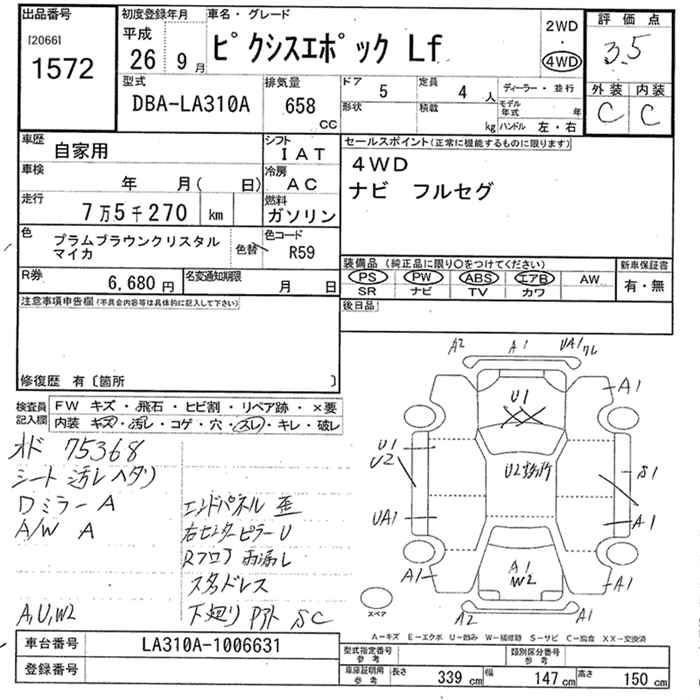 出品番号
[2066]
1572
初度登録年月
平成
26 9月
車名・グレード
ピクシスエポック Lf
2WD
4WD
評価点
3.5
外装 内装
C C
型式
DBA-LA310A
排気量
658
cc
ドア 5
定員 4 人
形状
積載 kg
ディーラー・並行
モデル年式 年
ハンドル 左・右
車歴
自家用
シフト
IAT
車検
年 月( 日)
冷房
AC
走行
7万5千270 km
燃料
ガソリン
色
プラムブラウンクリスタル
マイカ
色替
色コード
R59
R券
6,680円
名変通知期限
月 日
セールスポイント(正常に機能するものに限ります)
4WD
ナビ フルセグ
装備品(純正品に限り○をつけてください)
PS PW ABS エアB AW
SR ナビ TV カワ
新車保証書
有・無
後日品
注意事項申告欄(不具合内容等は具体的に記入して下さい)
修復歴 有〔箇所 〕
検査員
記入欄
FW キズ・飛石・ヒビ割・リペア跡・×要
内装 キズ・汚レ・コゲ・穴・スレ・キレ・破レ
オド 75368
シート汚レヘタリ
ワミラーA
A/W A
エンドパネル歪
右センターピラーU
Rフロア雨漏レ
スタッドレス
A,U,W2
下廻り SC
A2 A1 UA1 ワレ
A1
U1
U1
U2
U2
S1
UA1
A1
A1
A1
W2
A1
A2 A1
スペア
A-キズ E-エクボ U-凹み W-補修跡 S-サビ C-腐食 XX-交換済
車台番号
LA310A-1006631
登録番号
型式指定番号
参考
類別区分番号
参考
車庫証明用
参考
長さ 339 cm
幅 147 cm
高さ 150 cm